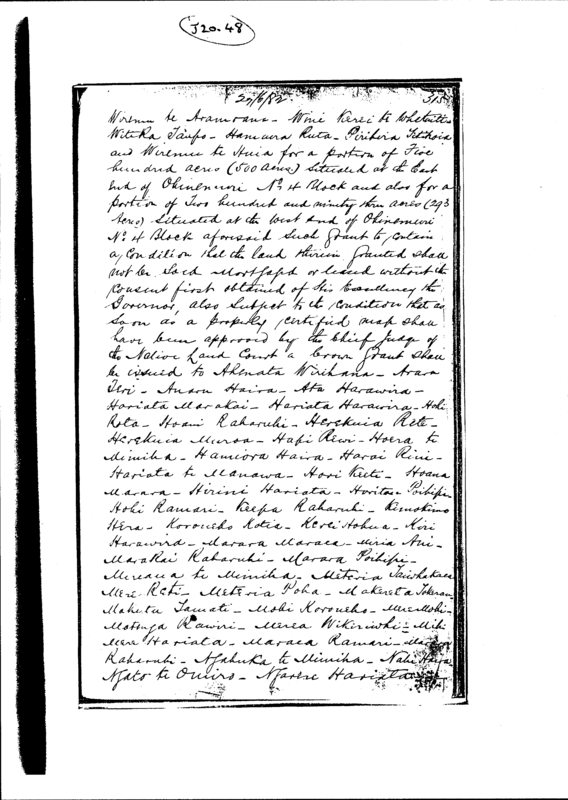 J20.48
27/6/82. 315
Wiremu te Aramoana - Wini Kerei te Whetuiti
Witika Taupo - Hamuera Ruta - Piribira
and Wiremu te Huia for a portion of Five
hundred acres (500 acres) situated at the East
end of Ohinemuri No 4 Block and also for a
portion of Two hundred and ninety three acres (293
Acres) situated at the West end of Ohinemuri
No 4 Block aforesaid such grant to contain
a condition that the land therein granted shall
not be sold mortgaged or leased without the
consent first obtained of His Excellency the
Governor, also subject to the condition that as
soon as a properly certified map shall
have been approved by the Chief Judge of
the Native Land Court a Crown grant shall
be issued to Akenata Wirihana - Arara
Teri - Anaru Haira - Ata Harawira -
Hariata Marakai - Hariata Harawira - Hohi
Rota - Hoani Raharuhi - Herekuia Reti -
Herekuia Muroa - Hapi Rewi - Hoera te
Mimiha - Hamiora Haira - Harai Rini -
Hariata te Manawa - Hori Keeti - Hoana
Marara - Hirini Hariata - Poihipi
Hohi Ramari - Keepa Raharuhi -
Hera - Koroneho Kotia - Kerei Hohua - Kiri
Harawira - Marara Maraea - Miria Ani -
Marakai Raharuhi - Marara Poihipi -
Mereana te Mimiha - Meteria Taiwhakaea
Mere Reti - Meteria Poha - Makereta
Maketu Tamati - Mohi Koroneho - Mere Mohi -
Rawiri - Merea Wikiriwhi - Mihi
Mere Hariata - Maraea Ramari -
Raharuhi - Ngahuka te Mimiha -
Ngato te Omiro - Ngarere Hariata